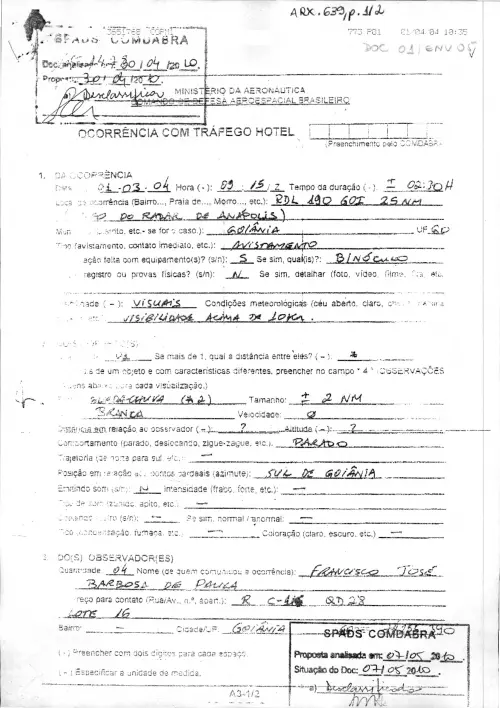 ARX. 639, p. 1/2
SPADS COMDABRA
01/04/04 10:35
DOC 01/ENV 05
30/04/2010
Desclassificar
MINISTÉRIO DA AERONÁUTICA
COMANDO DE DEFESA AEROESPACIAL BRASILEIRO
OCORRÊNCIA COM TRÁFEGO HOTEL
(Preenchimento pelo COMDABRA)
1. DA OCORRÊNCIA
01-03-04 Hora (-): 09:15/Z Tempo da duração (-). ± 02:30H
ocorrência (Bairro..., Praia de..., Morro..., etc.): RDL 190 GOI 25NM
DO RADAR DE ANÁPOLIS)
etc.- se for o caso.): GOIÂNIA UF GO
(avistamento, contato imediato, etc.): AVISTAMENTO
feita com equipamento(s)? (s/n): S Se sim, qual(is)?: BINÓCULO
registro ou provas físicas? (s/n): N Se sim, detalhar (foto, vídeo, filme, fita, etc.
(-): VISUAIS Condições meteorológicas (céu aberto, claro,
VISIBILIDADE ACIMA DE 10KM.
01 Se mais de 1, qual a distância entre eles? (-):
de um objeto e com características diferentes, preencher no campo "4" (OBSERVAÇÕES
cada visualização.)
Tamanho: ± 2 NM
BRANCA Velocidade: 0
Distância em relação ao observador (-): ? Altitude (-): ?
Comportamento (parado, deslocando, zigue-zague, etc.): PARADO
Trajetória (de norte para sul, etc.): —
Posição em relação aos pontos cardeais (azimute): SUL DE GOIÂNIA
Emitindo som (s/n): N Intensidade (fraco, forte, etc.): —
Tipo de som (zunido, apito, etc.): —
(s/n): — Se sim, normal / anormal: —
(condensação, fumaça, etc.) — Coloração (claro, escuro, etc.) —
DO(S) OBSERVADOR(ES)
Quantidade 04 Nome (de quem comunicou a ocorrência): FRANCISCO JOSÉ
BARBOSA DE PAULA
reço para contato (Rua/Av., n.º, apart.): R C-
QD 28
LOTE 16
Bairro: — Cidade/UF: GOIÂNIA
(-) Preencher com dois dígitos para cada espaço.
(-) Especificar a unidade de medida.
A3-1/2
SPADS COMDABRA
Proposta analisada em: 07/05 2010
Situação do Doc: 07/05 2010
Desclassificado